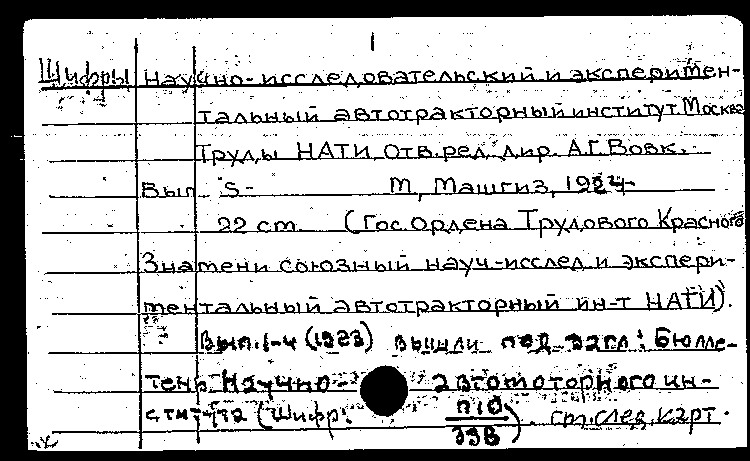 Шифры Научно-исследовательский и эксперимен-
тальный автотракторный институт. Москва
Труды НАТИ. Отв. ред. дир. А.Г. Вовк.
Вып. 5- М, Машгиз, 1924-
22 cm. (Гос. Ордена Трудового Красного
Знамени союзный науч-исслед и экспери-
ментальный автотракторный ин-т НАТИ).
Вып. 1-4 (1923) вышли под загл: Бюлле-
тень Научно- автомоторного ин-
ститута (Шифр: П10/39В). ст. след. карт.